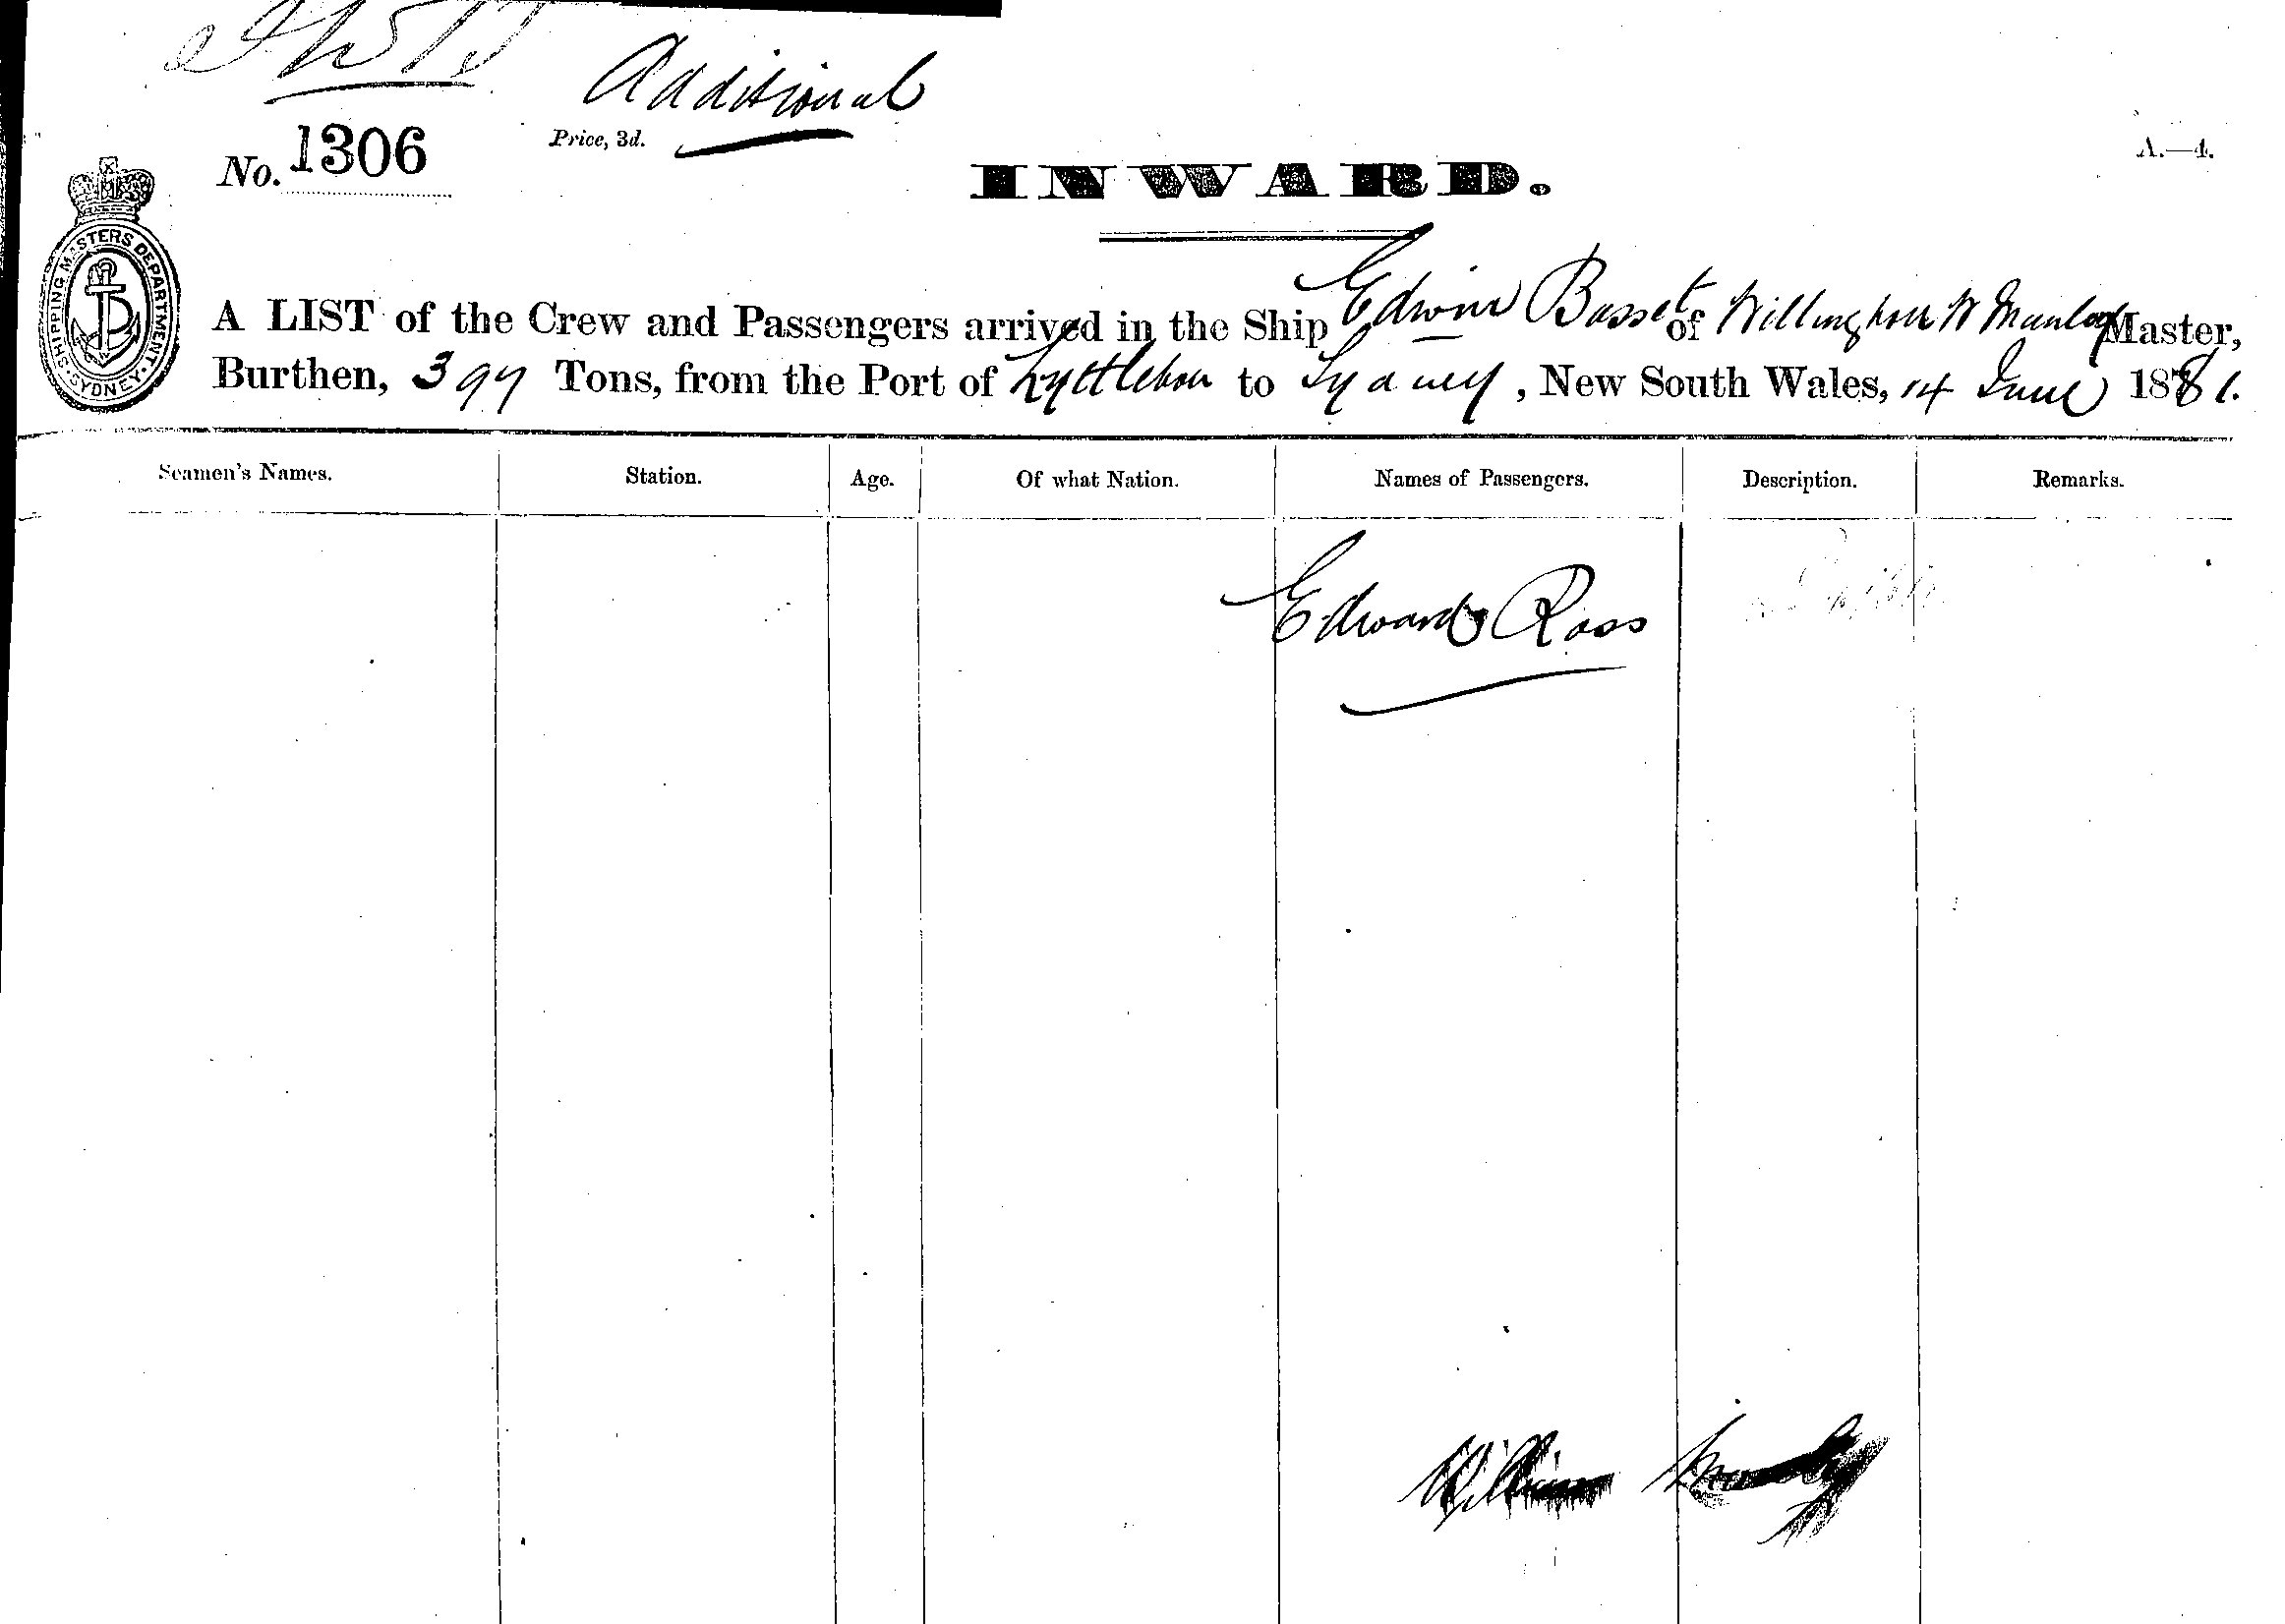 Additional
No. 1306
Price, 3d.
A.—4.
INWARD.
SHIPPING MASTERS DEPARTMENT
SYDNEY
A LIST of the Crew and Passengers arrived in the Ship Edwin Basset of W Manley Master,
Burthen, 397 Tons, from the Port of Lyttleton to Sydney, New South Wales, 14 June 1881.
Seamen's Names. Station. Age. Of what Nation. Names of Passengers. Description. Remarks.
Edward Ross
William Manley